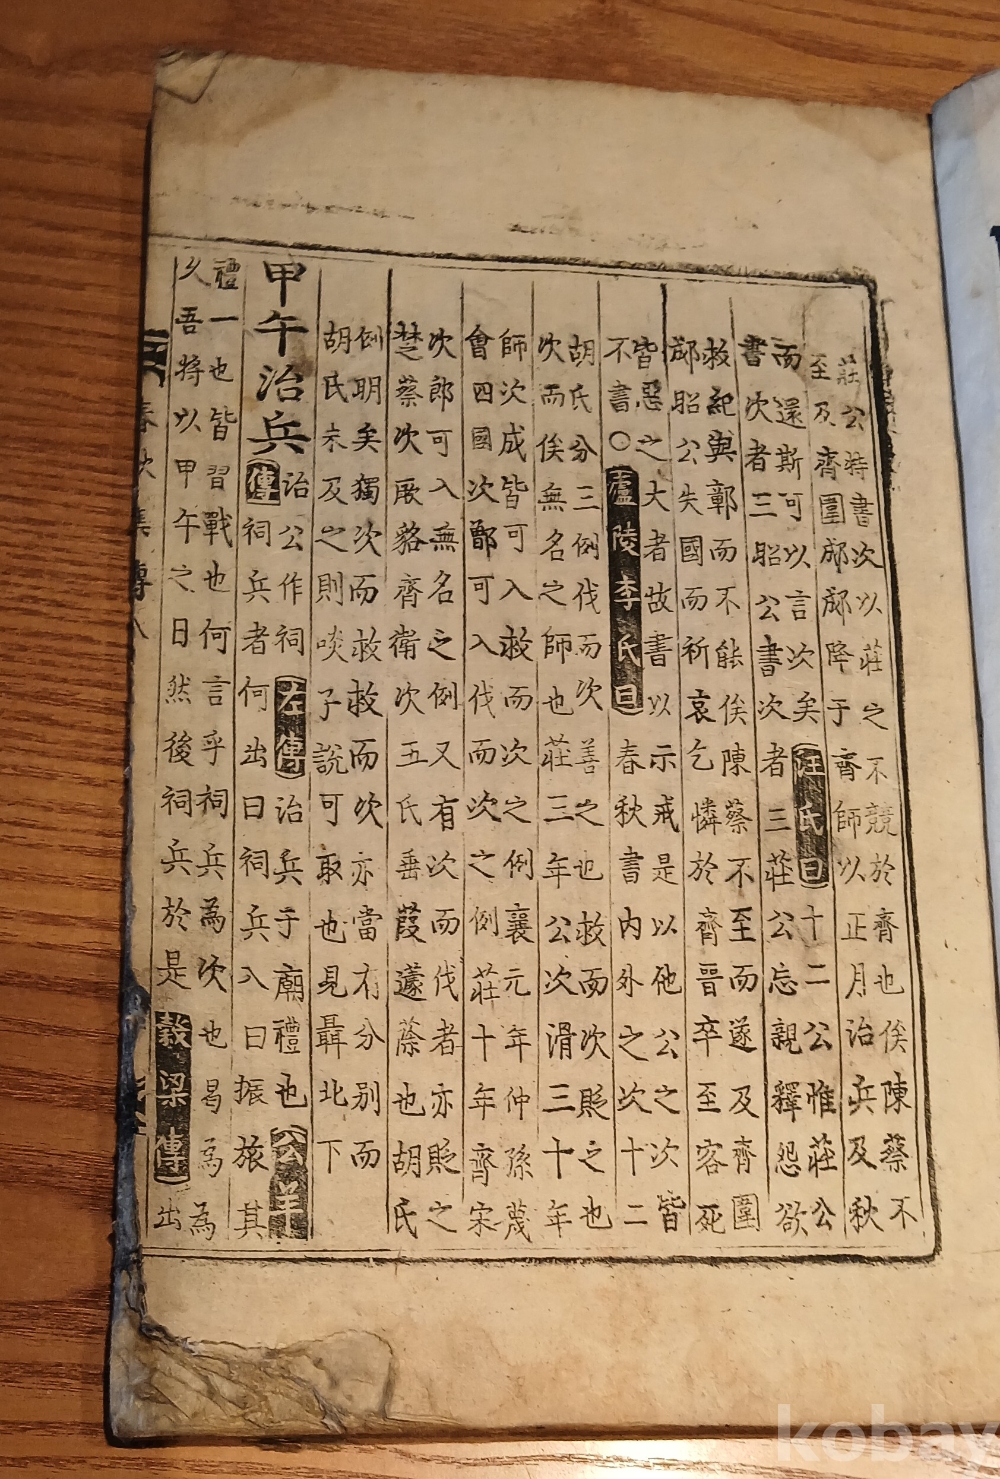 莊公特書次以莊之不競於齊也俟陳蔡不
至及齊圍郕郕降于齊師以正月治兵及秋
而還斯可以言次矣汪氏曰十二公惟莊公
書次者三昭公書次者三莊公忘親釋怨欲
救紀與鄣而不能俟陳蔡不至而遂及齊圍
郕昭公失國而祈哀乞憐於齊晉卒至客死
皆惡之大者故書以示戒是以他公之次皆
不書○廬陵李氏曰春秋書內外之次十二
胡氏分三例伐而次善之也救而次貶之也
次而俟無名之師也莊三年公次滑三十年
師次成皆可入救而次之例襄元年仲孫蔑
會四國次鄫可入伐而次之例莊十年齊宋
次郎可入無名之例又有次而伐者亦貶之
楚蔡次厥貉齊衛次五氏垂葭蘧蒢也胡氏
例明矣獨次而救救而次亦當有分別而
胡氏未及之則啖子說可取也見聶北下
甲午治兵
治公作祠左傳治兵于廟禮也公羊
傳祠兵者何出曰祠兵入曰振旅其
禮一也皆習戰也何言乎祠兵為次也曷為為
久吾將以甲午之日然後祠兵於是穀梁傳出
春秋集傳八
kobay